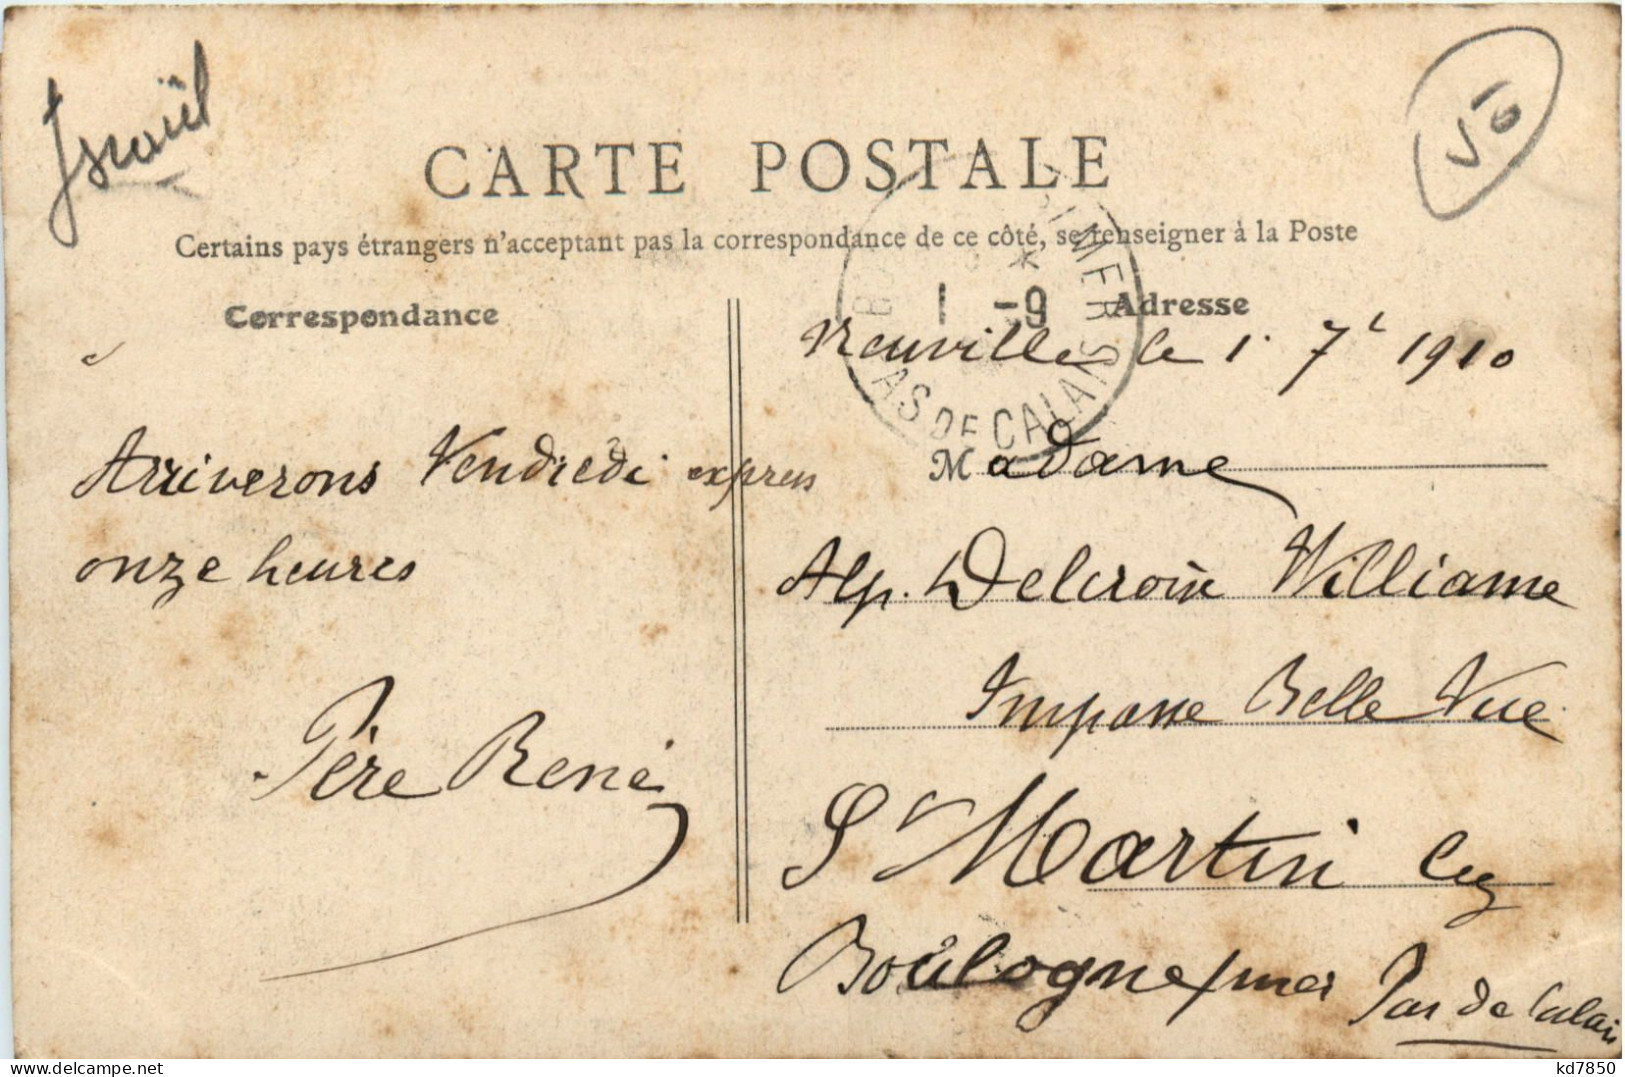 Israël
V6
CARTE POSTALE
Certains pays étrangers n'acceptant pas la correspondance de ce côté, se renseigner à la Poste
Correspondance
Adresse
1 -9
PAS DE CALAIS
Neuville le 1. 7 1910
Arriverons Vendredi express
onze heures
Père René
Madame
Alp. Delcroix Williame
Impasse Belle Vue
St Martin lez
Boulogne s/mer Pas de Calais
kd7850